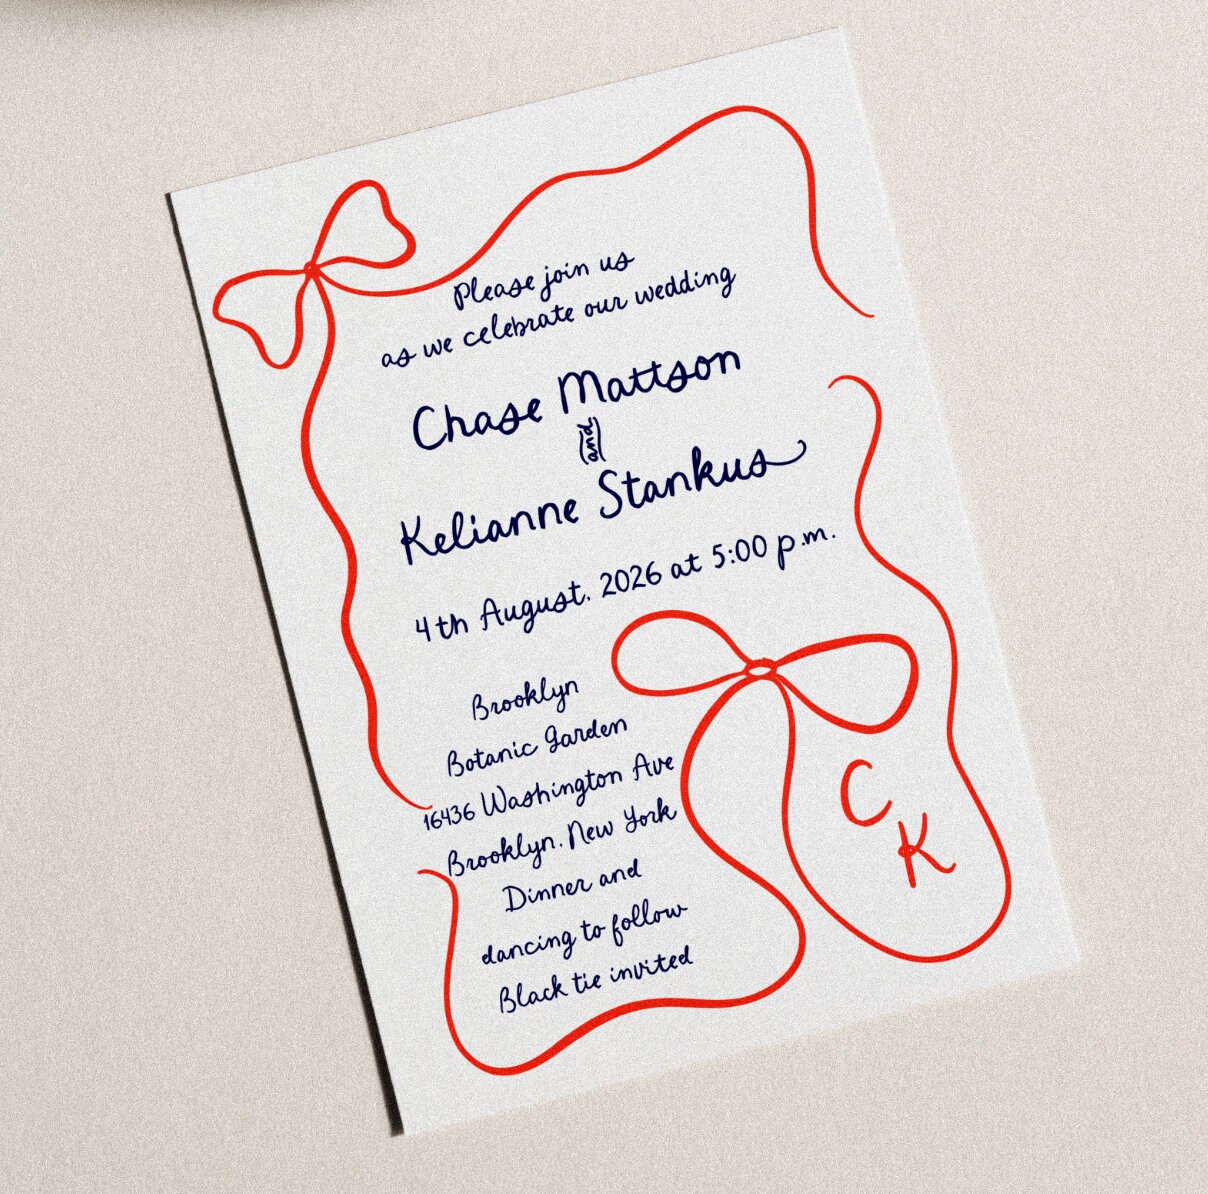 Please join us
as we celebrate our wedding
Chase Mattson
and
Kelianne Stankus
4th August. 2026 at 5:00 p.m.
Brooklyn
Botanic Garden
16436 Washington Ave
Brooklyn. New York
Dinner and
dancing to follow
Black tie invited
C
K